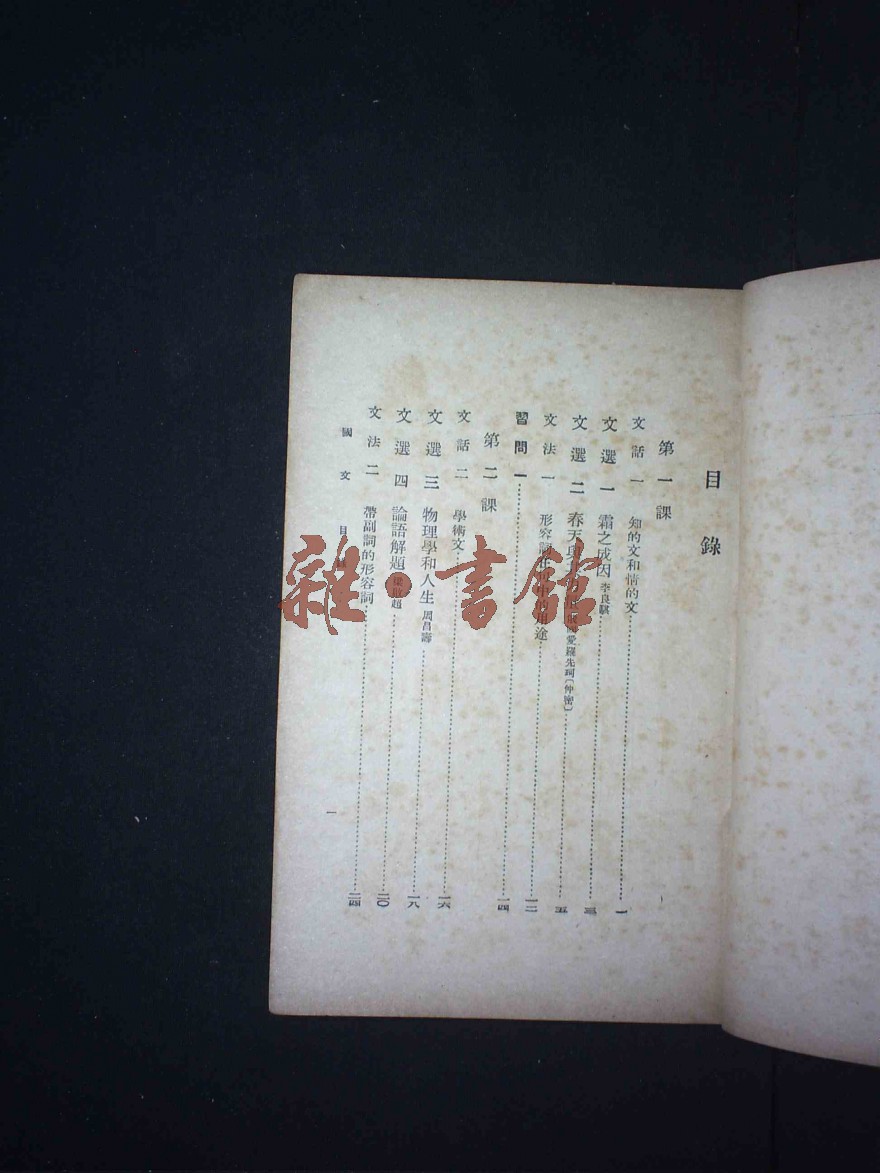 目錄
第一課
文話一 知的文和情的文 一
文選一 霜之成因 李良騏 三
文選二 春天與其 愛羅先珂(仲密) 五
文法一 形容詞在 用途 一二
習問一 一四
第二課
文話二 學術文 一六
文選三 物理學和人生 周昌壽 一八
文選四 論語解題 梁啟超 二〇
文法二 帶副詞的形容詞 二四
國文 目錄 一
雜·書館